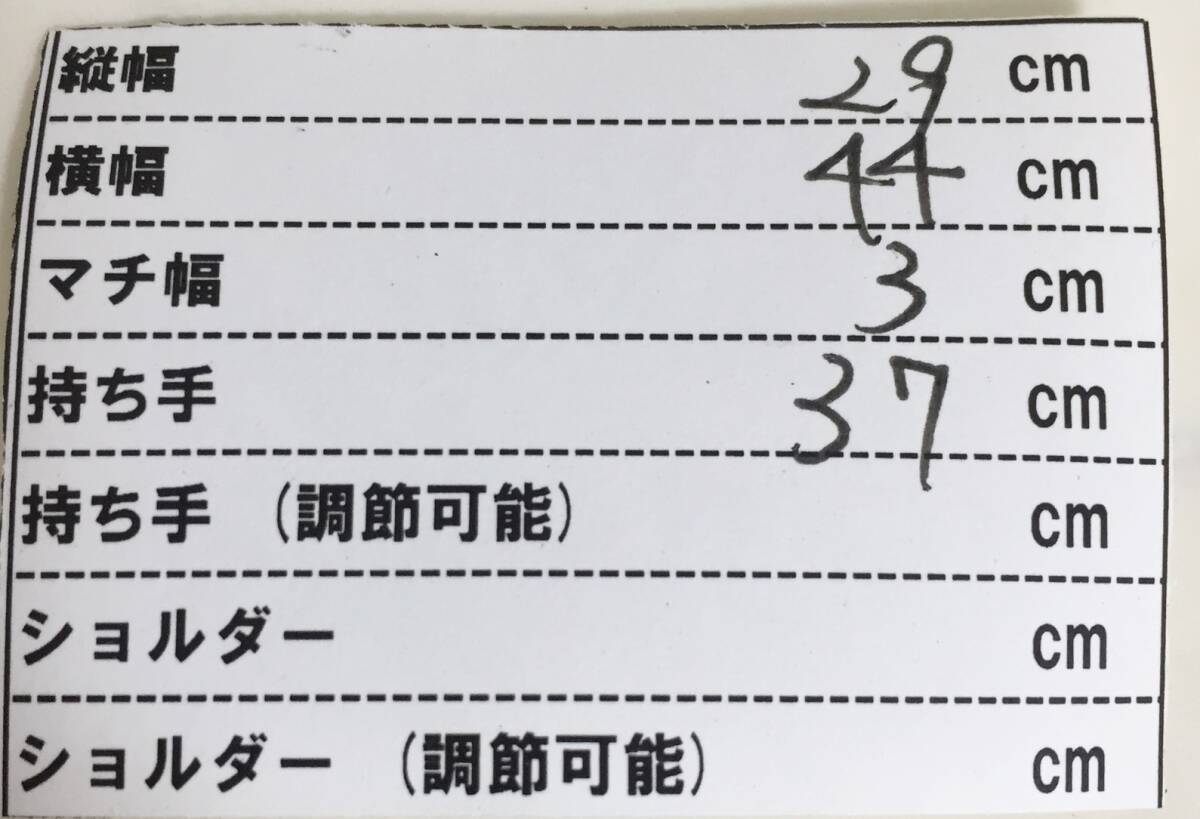 縦幅 29 cm
横幅 44 cm
マチ幅 3 cm
持ち手 37 cm
持ち手 (調節可能) cm
ショルダー cm
ショルダー (調節可能) cm